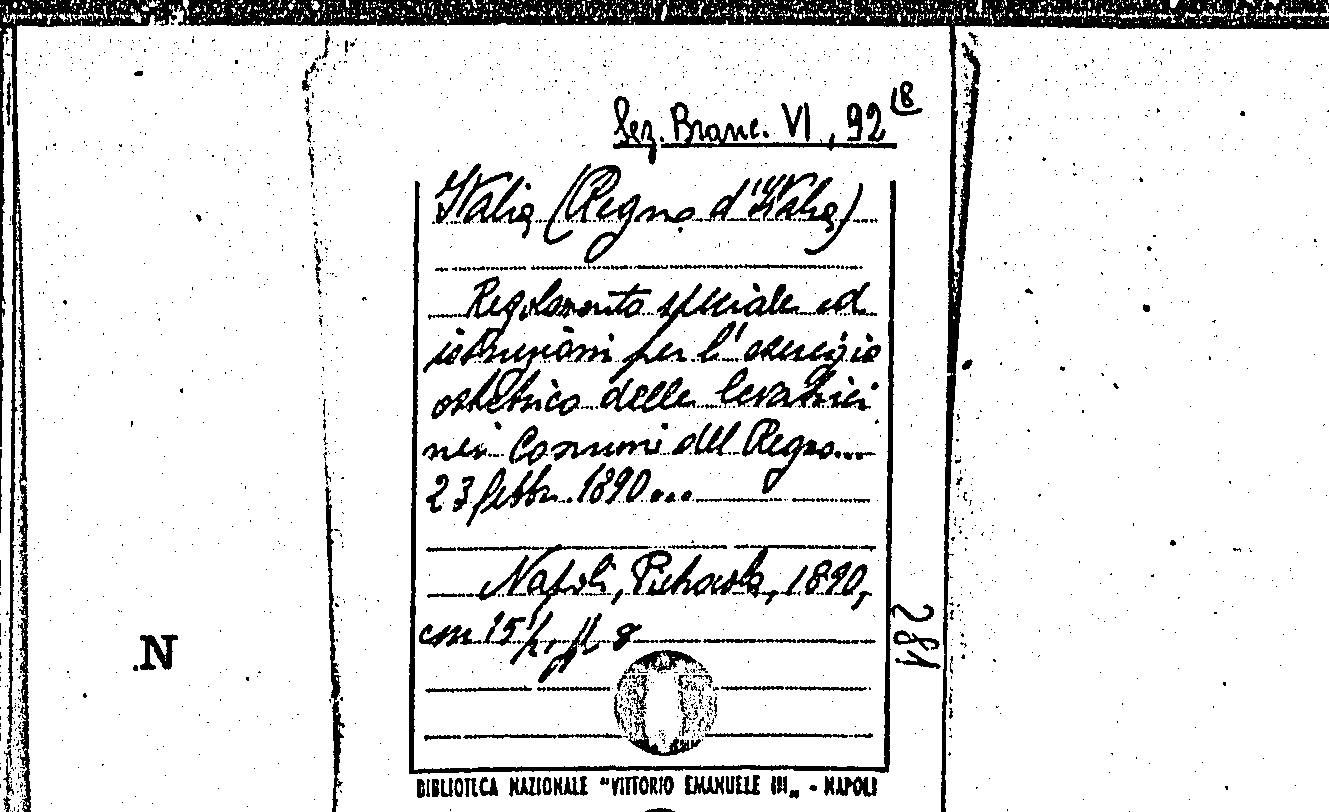 Sez. Branc. VI, 92 (8
Italia (Regno d'Italia)
Regolamento speciale ed
istruzioni per l'esercizio
ostetrico delle levatrici
nei Comuni del Regno...
23 febbr. 1890...
Napoli, 1890,
cm 15½, ff. 8
281
N
BIBLIOTECA NAZIONALE "VITTORIO EMANUELE III„ - NAPOLI